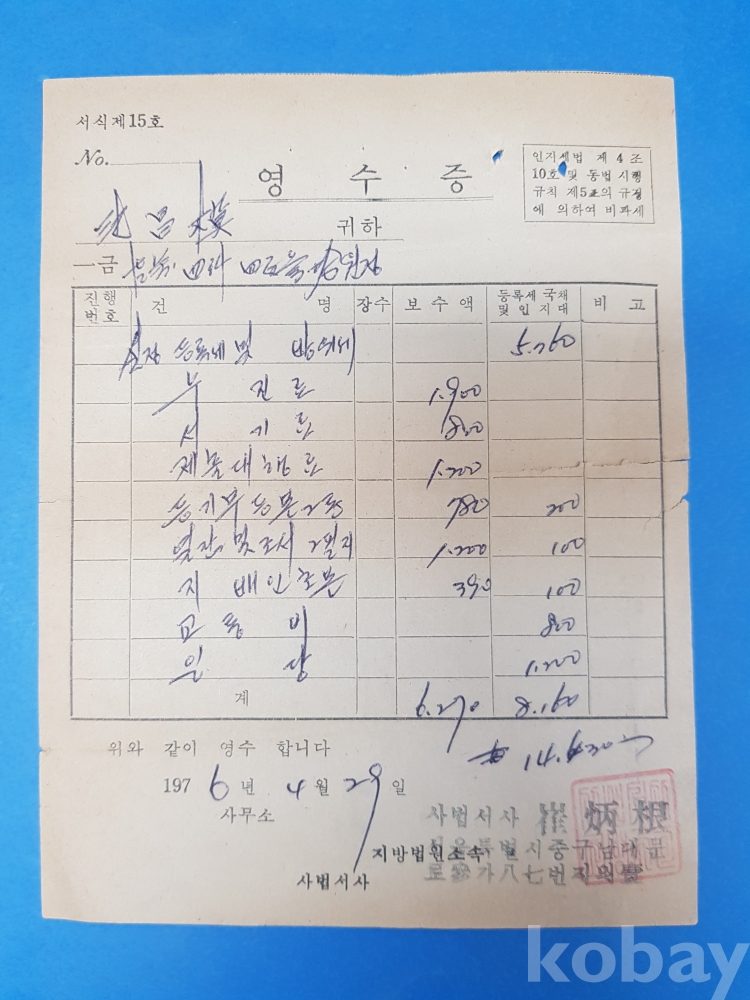 서식제15호
No.
영 수 증
인지세법 제 4 조
10호 및 동법 시행
규칙 제5조의 규정
에 의하여 비과세
昌 模 귀하
一금
진행번호 건 명 장수 보수액 등록세 국채 및 인지대 비 고
등록세 및 방위세 5.260
부 진 료 1.900
서 기 료 800
제출대행료 1.200
등기부등본2통 780 200
열람 및 조서 1.200 100
지배인초본 390 100
교 통 비 800
일 당 1.200
계 6.270 8.160
위와 같이 영수 합니다
14.430
1976년 4월 29일
사무소
사법서사 崔炳根
지방법원소속
서울특별시중구남대문
로 가八七번지의
사법서사
kobay